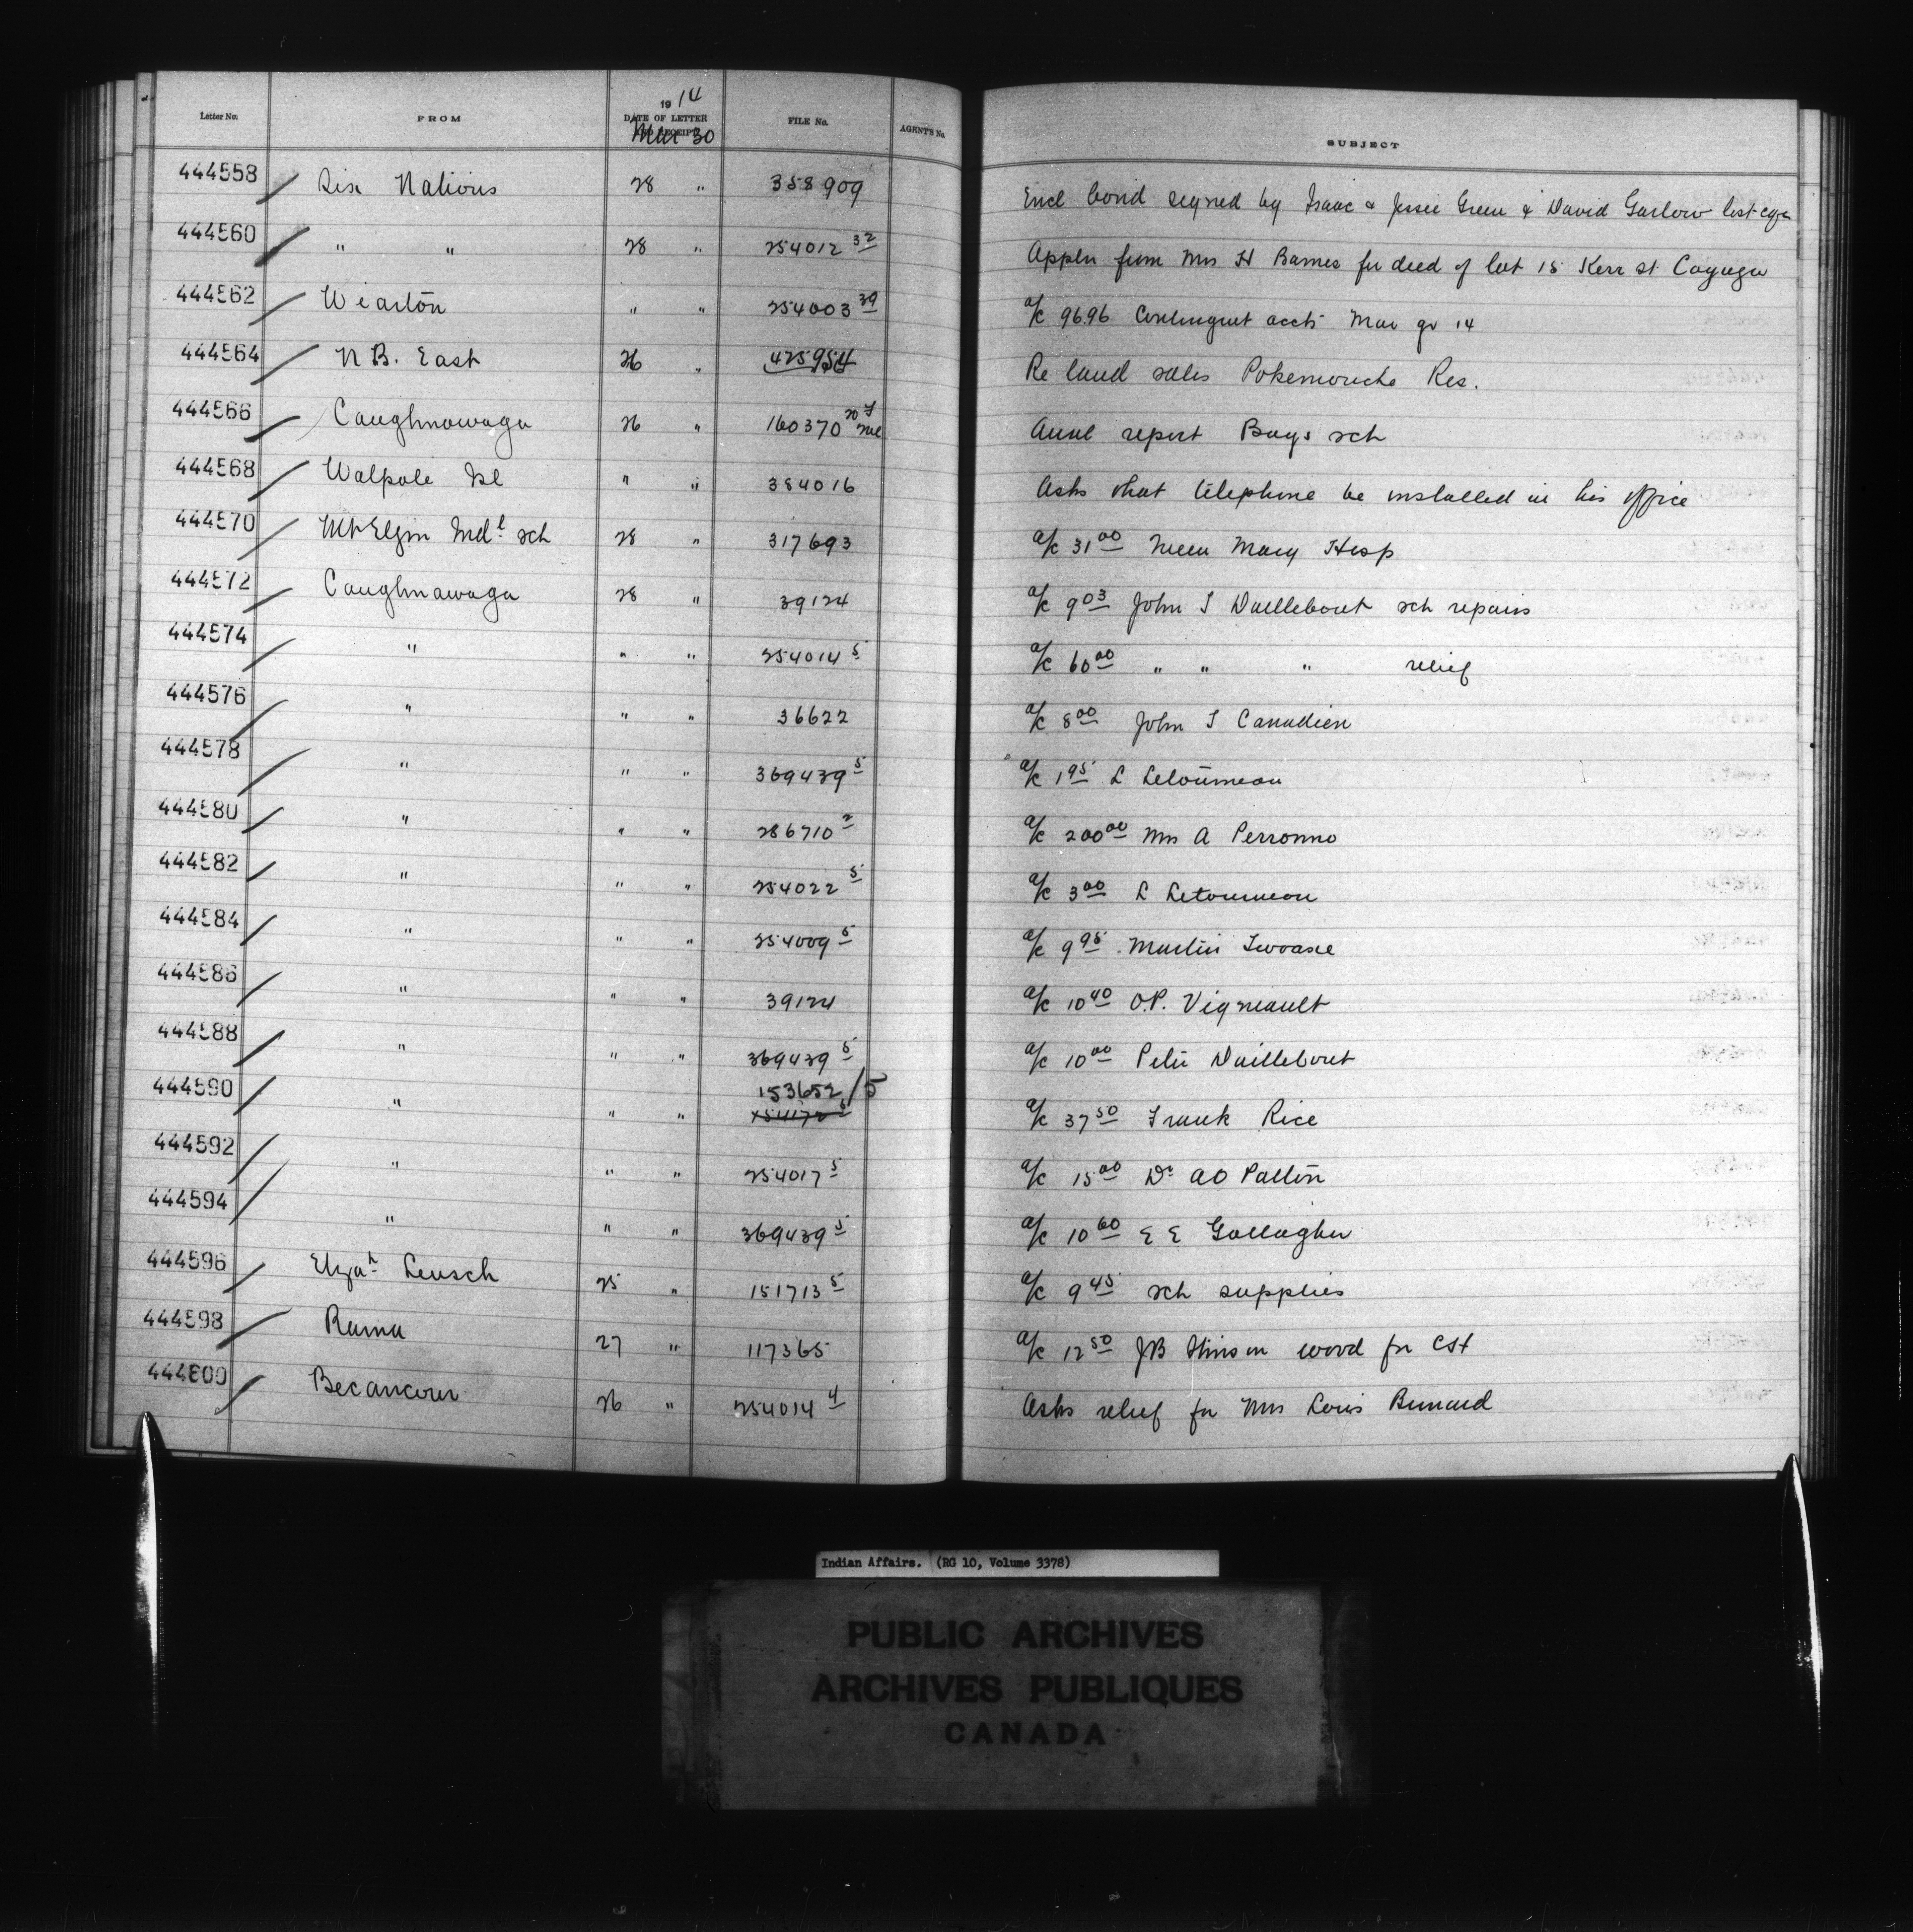 Letter No. FROM 1914 DATE OF LETTER Mar 30 FILE No. AGENT'S No. SUBJECT
444558 Six Nations 28 " 358909 Encl bond signed by Isaac & Jessie Green & David Garlow lost
444560 " " 28 " 254012 32 Appln from Mrs H Barnes for deed of lot 15 Kerr st Cayuga
444562 Wiarton " " 254003 39 a/c 96.96 Contingent accts Mar qr 14
444564 N B. East 26 " 425954 Re land sales Pokemouche Res.
444566 Caughnawaga 26 " 160370 Annl report Boys sch
444568 Walpole Isl " " 384016 Asks that telephone be installed in his office
444570 Mt Elgin Indl sch 28 " 317693 a/c 31 00 Mary Hosp
444572 Caughnawaga 28 " 39124 a/c 9 03 John I Daillebout sch repairs
444574 " " " 254014 5 a/c 60 00 " " " relief
444576 " " " 36622 a/c 8 00 John I Canadien
444578 " " " 369439 5 a/c 1 95 L Letourneau
444580 " " " 286710 2 a/c 200 00 Mrs A Perronno
444582 " " " 254022 5 a/c 3 00 L Letourneau
444584 " " " 254009 5 a/c 9 95 Martin
444586 " " " 39124 a/c 10 40 O.P. Vigneault
444588 " " " 369439 5 a/c 10 00 Peter Daillebout
153652/5
444590 " " " a/c 37 50 Frank Rice
444592 " " " 254017 5 a/c 15 00 Dr A O Patton
444594 " " " 369439 5 a/c 10 60 E E Gallagher
444596 Elzah Leusch 25 " 151713 5 a/c 9 45 sch supplies
444598 Rama 27 " 117365 a/c 12 50 JB Stinson wood for CSt
444600 Becancour 26 " 254014 4 Asks relief for Mrs Louis Bernard
Indian Affairs. (RG 10, Volume 3378)
PUBLIC ARCHIVES
ARCHIVES PUBLIQUES
CANADA